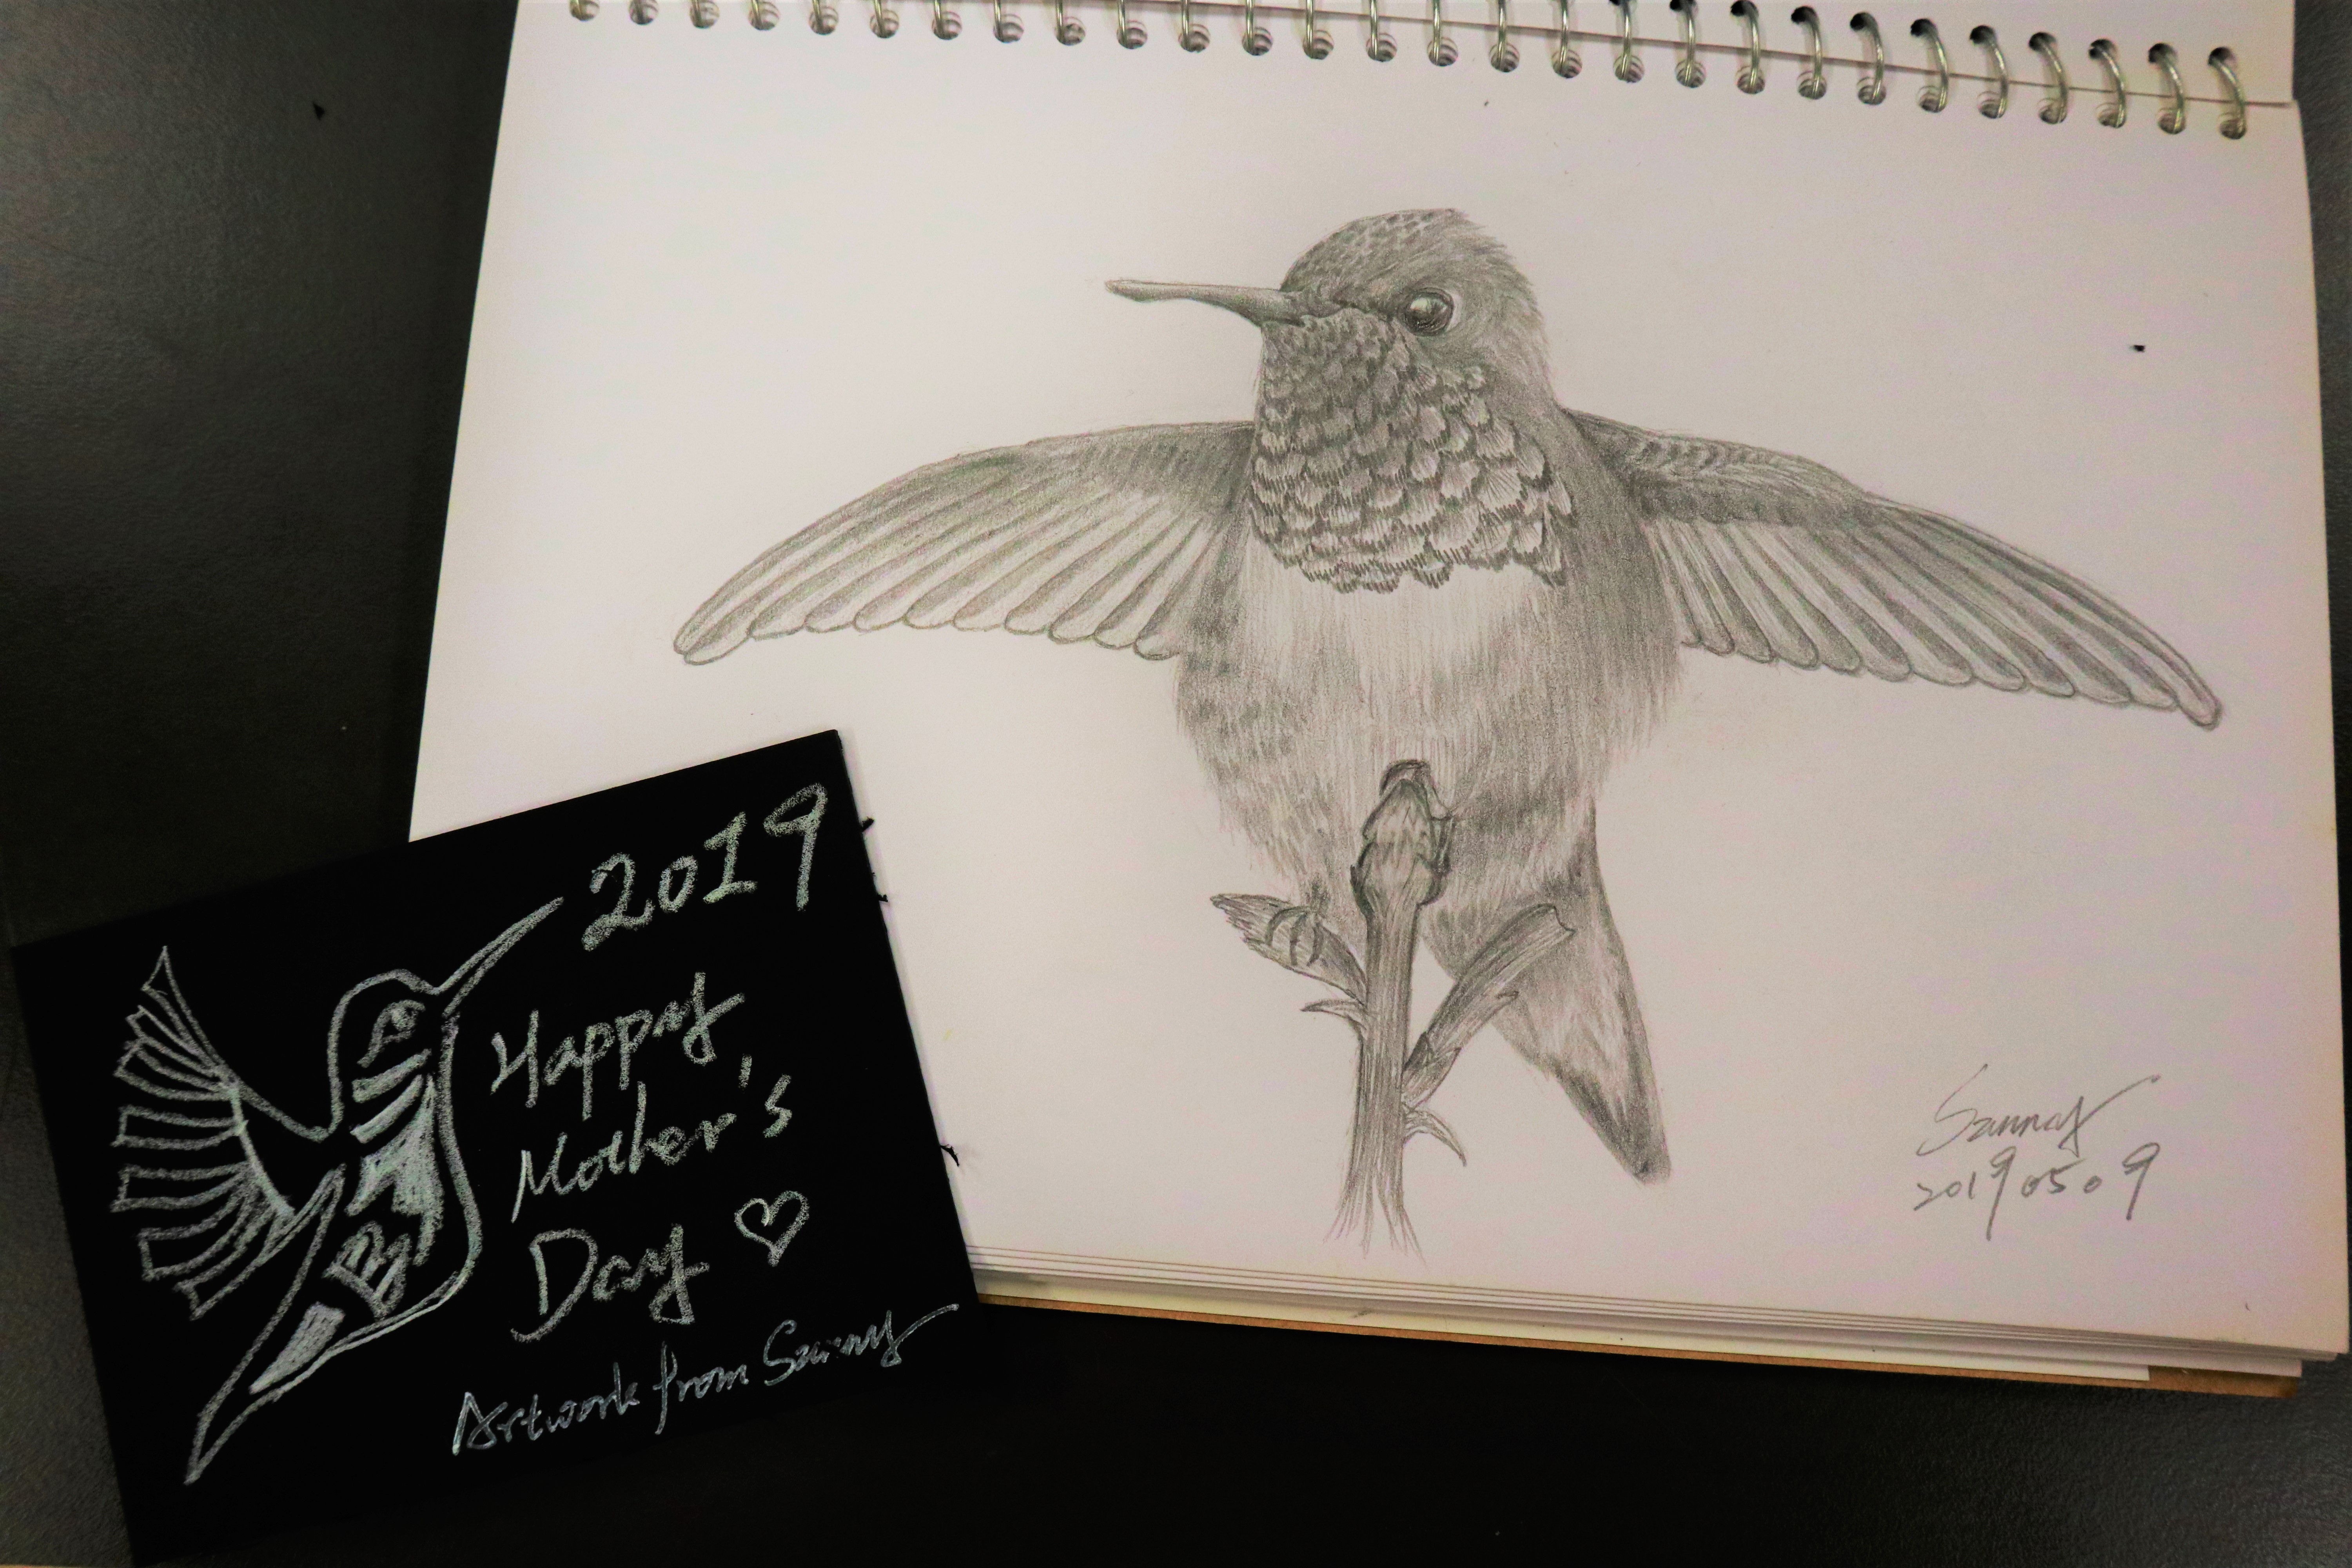 2019
Happy
Mother's
Day ♡
Artwork from Sanny
Sanny
20190509